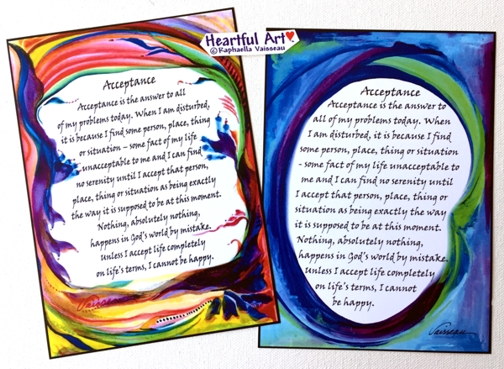 Heartful Art
© Raphaella Vaisseau
Acceptance
Acceptance is the answer to all
of my problems today. When I am disturbed,
it is because I find some person, place, thing
or situation – some fact of my life
unacceptable to me and I can find
no serenity until I accept that person,
place, thing or situation as being exactly
the way it is supposed to be at this moment.
Nothing, absolutely nothing,
happens in God's world by mistake.
unless I accept life completely
on life's terms, I cannot be happy.
Vaisseau
Acceptance
Acceptance is the answer to
all of my problems today. When
I am disturbed, it is because I find
some person, place, thing or situation
- some fact of my life unacceptable
to me and I can find no serenity until
I accept that person, place, thing or
situation as being exactly the way
it is supposed to be at this moment.
Nothing, absolutely nothing,
happens in God's world by mistake.
Unless I accept life completely
on life's terms, I cannot
be happy.
Vaisseau